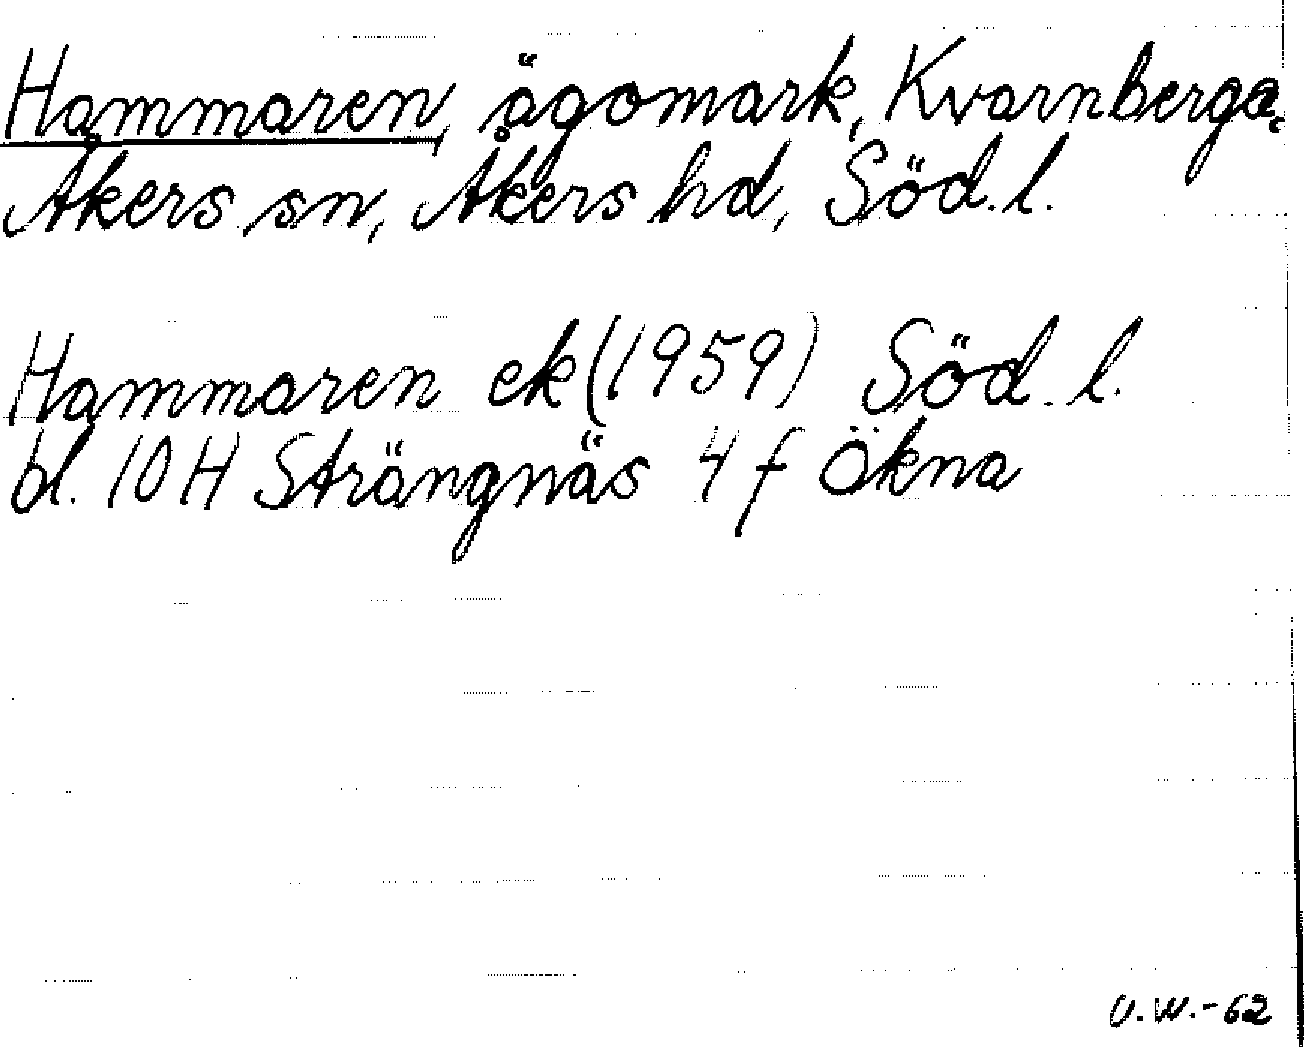 Hammaren, ägomark, Kvarnberga,
Åkers sn, Åkers hd, Söd. l.
Hammaren ek (1959) Söd. l.
bl. 10 H Strängnäs 4 f Ökna
U.W.-62